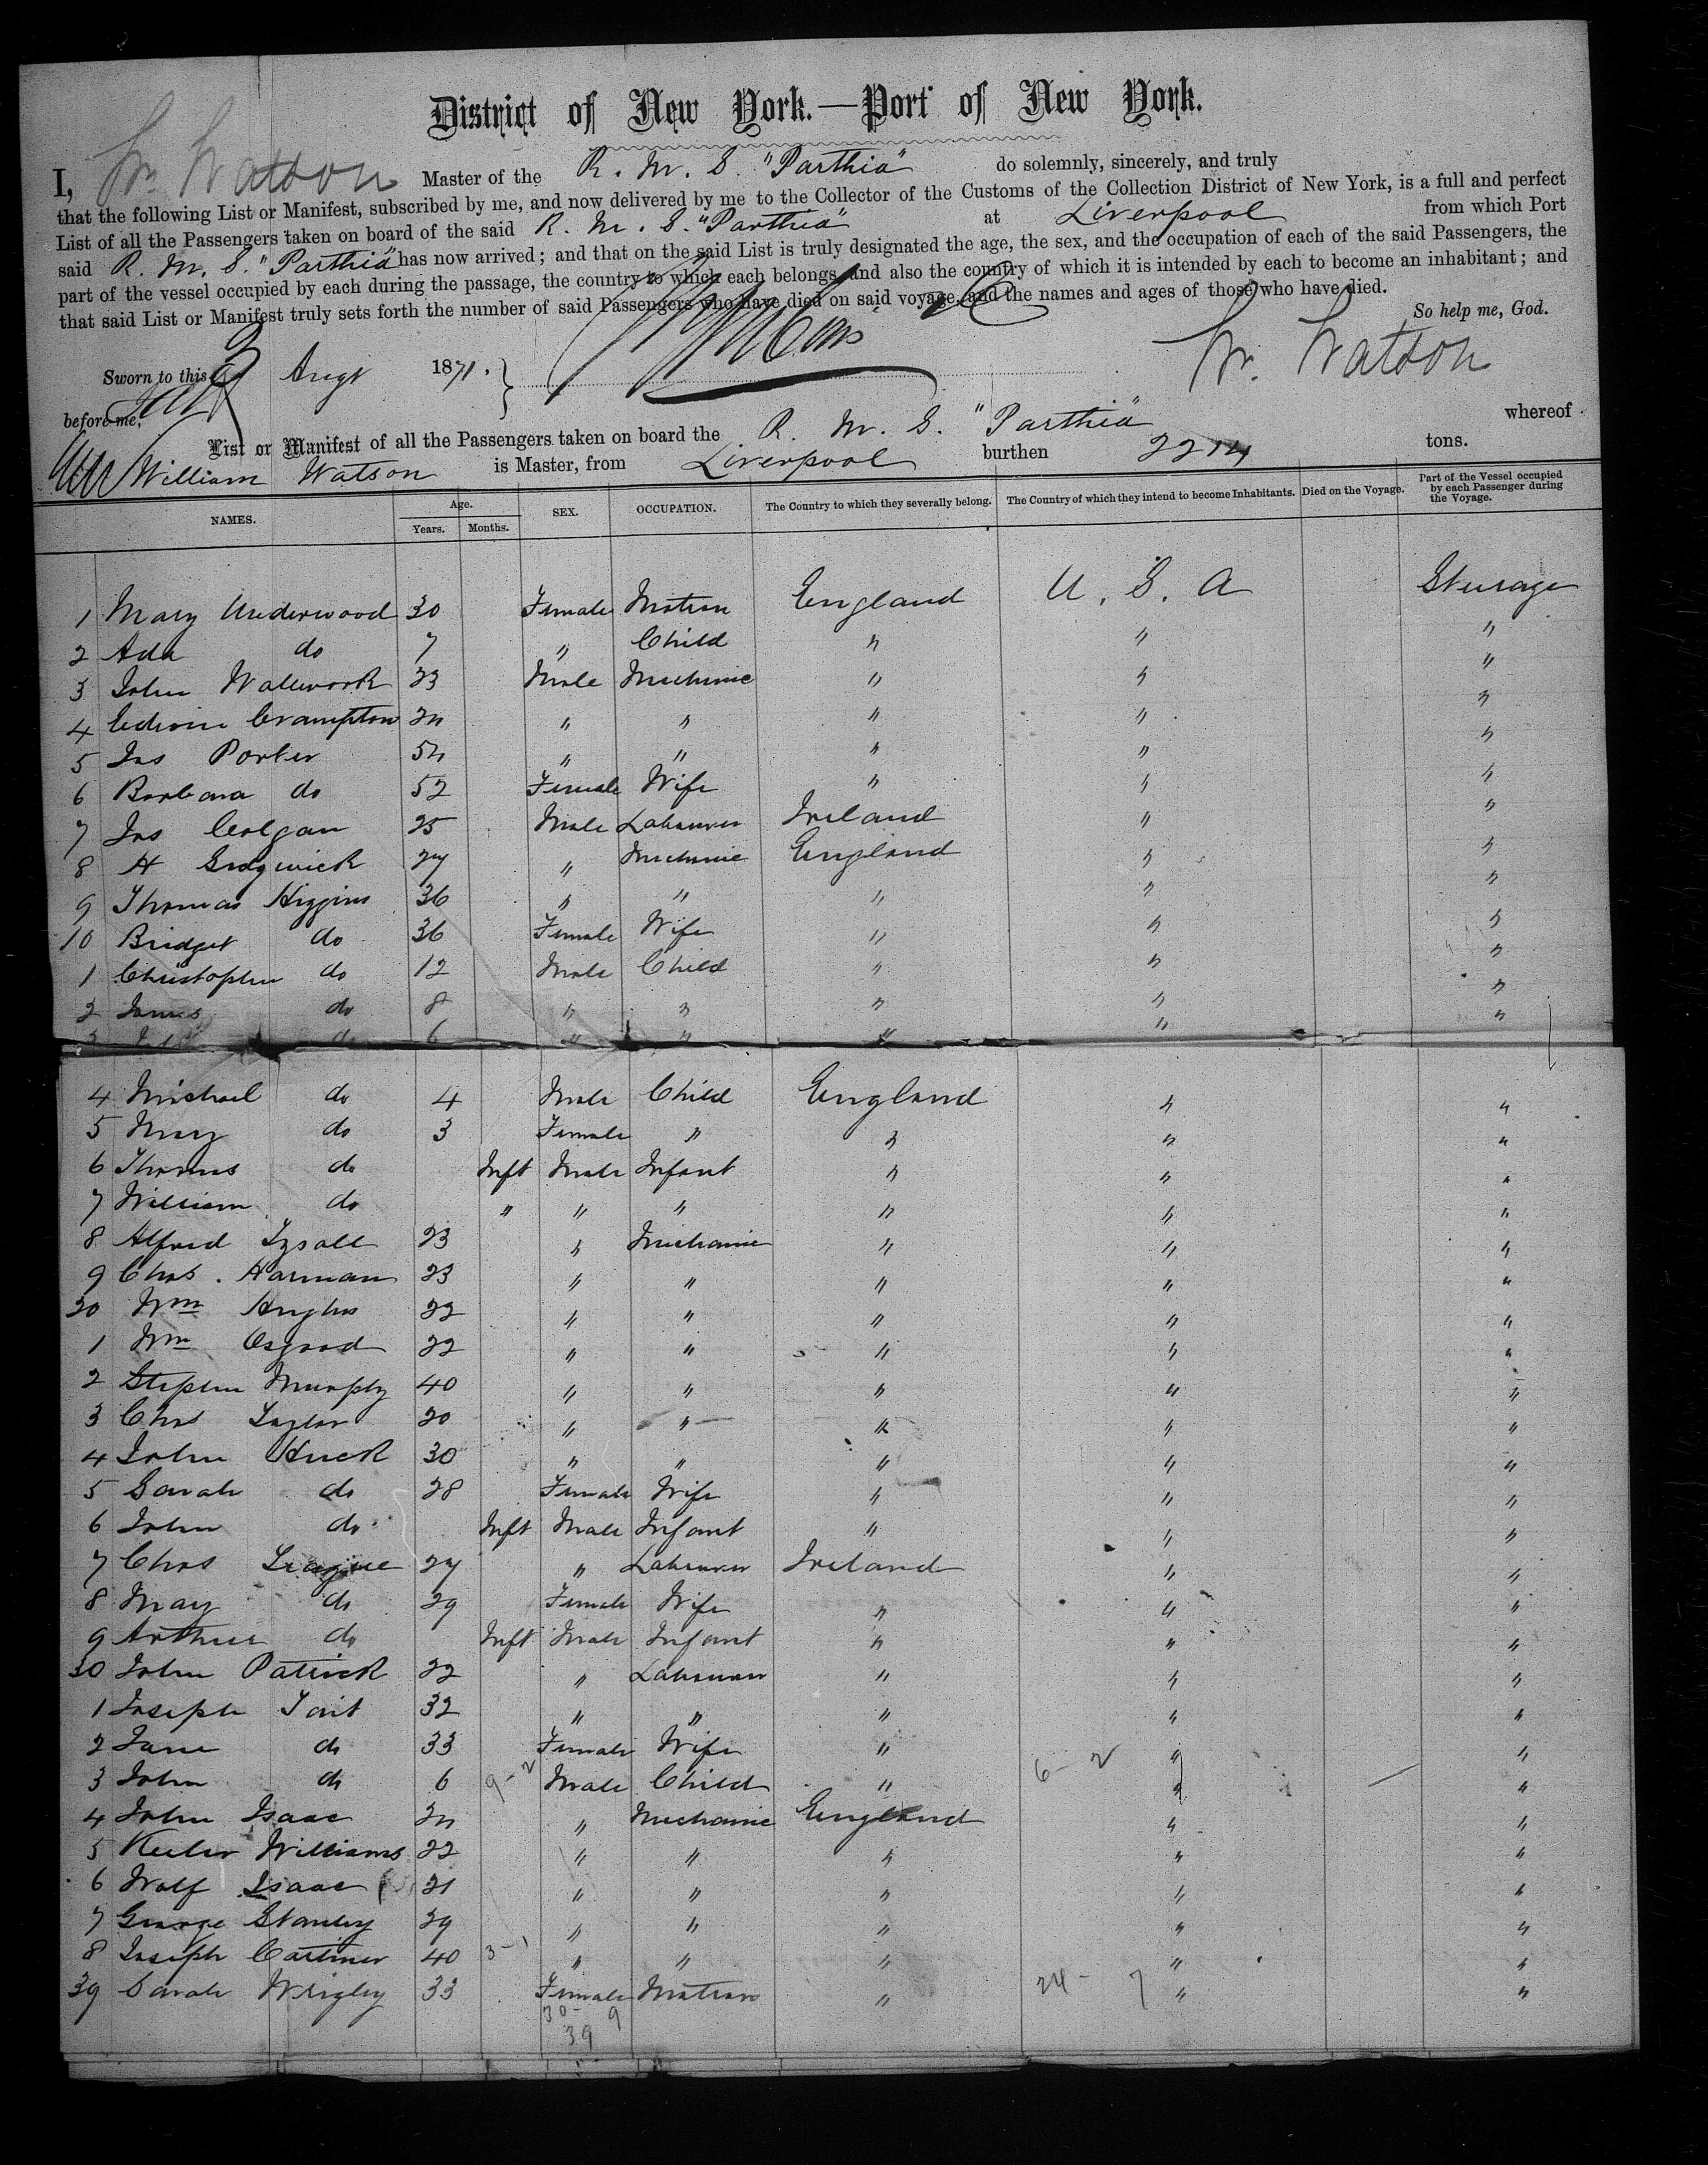 District of New York.—Port of New York.
I, Wm. Watson Master of the R. M. S. "Parthia" do solemnly, sincerely, and truly
that the following List or Manifest, subscribed by me, and now delivered by me to the Collector of the Customs of the Collection District of New York, is a full and perfect
List of all the Passengers taken on board of the said R. M. S. "Parthia" at Liverpool from which Port
said R. M. S. "Parthia" has now arrived; and that on the said List is truly designated the age, the sex, and the occupation of each of the said Passengers, the
part of the vessel occupied by each during the passage, the country to which each belongs, and also the country of which it is intended by each to become an inhabitant; and
that said List or Manifest truly sets forth the number of said Passengers who have died on said voyage, and the names and ages of those who have died.
So help me, God.
Sworn to this Augt 1871. Wm. Watson
before me,
List or Manifest of all the Passengers taken on board the R. M. S. "Parthia" whereof
William Watson is Master, from Liverpool burthen 2214 tons.
NAMES. Age. Years. Months. SEX. OCCUPATION. The Country to which they severally belong. The Country of which they intend to become Inhabitants. Died on the Voyage. Part of the Vessel occupied by each Passenger during the Voyage.
1 Mary Underwood 30 Female Matron England U. S. A Steerage
2 Ada do 7 " Child " " "
3 John Wallwork 23 Male Mechanic " " "
4 Edwin Crampton 24 " " " " "
5 Jas Porter 54 " " " " "
6 Barbara do 52 Female Wife " " "
7 Jas Colgan 25 Male Labourer Ireland " "
8 H Sedgwick 27 " Mechanic England " "
9 Thomas Higgins 36 " " " " "
10 Bridget do 36 Female Wife " " "
1 Christopher do 12 Male Child " " "
2 James do 8 " " " " "
3 do 6 " " " "
4 Michael do 4 Male Child England " "
5 Mary do 3 Female " " " "
6 Thomas do Inft Male Infant " " "
7 William do " " " " " "
8 Alfred Tysall 23 " Mechanic " " "
9 Chas. Harman 23 " " " " "
20 Wm Hughes 22 " " " " "
1 Wm Osgood 22 " " " " "
2 Stephen Murphy 40 " " " " "
3 Chas Taylor 20 " " " " "
4 John Huck 30 " " " " "
5 Sarah do 28 Female Wife " " "
6 John do Inft Male Infant " " "
7 Chas Teague 27 " Labourer Ireland " "
8 Mary do 29 Female Wife " " "
9 Arthur do Inft Male Infant " " "
30 John Patrick 22 " Labourer " " "
1 Joseph Tait 32 " " " " "
2 Jane do 33 Female Wife " " "
3 John do 6 9-2 Male Child " 6-2 " "
4 John Isaac 24 " Mechanic England " "
5 Williams 22 " " " " "
6 Wolf Isaac 21 " " " " "
7 George Stanley 29 " " " " "
8 Joseph 40 3-1 " " " " "
39 Sarah Wrigley 33 Female Matron " 24-7 " "
30-9
39